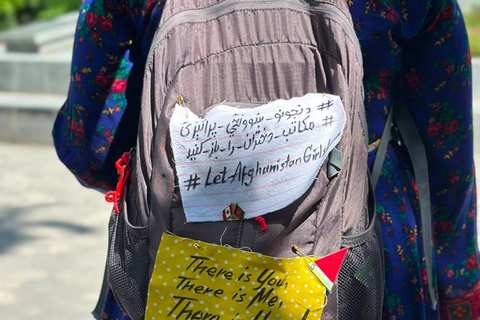 # دنجونو-ښوونځي-پرانیزئ
# مکاتب-دختران-را-بازکنید
# Let Afghanistan Girls
There is You,
There is Me,
There is